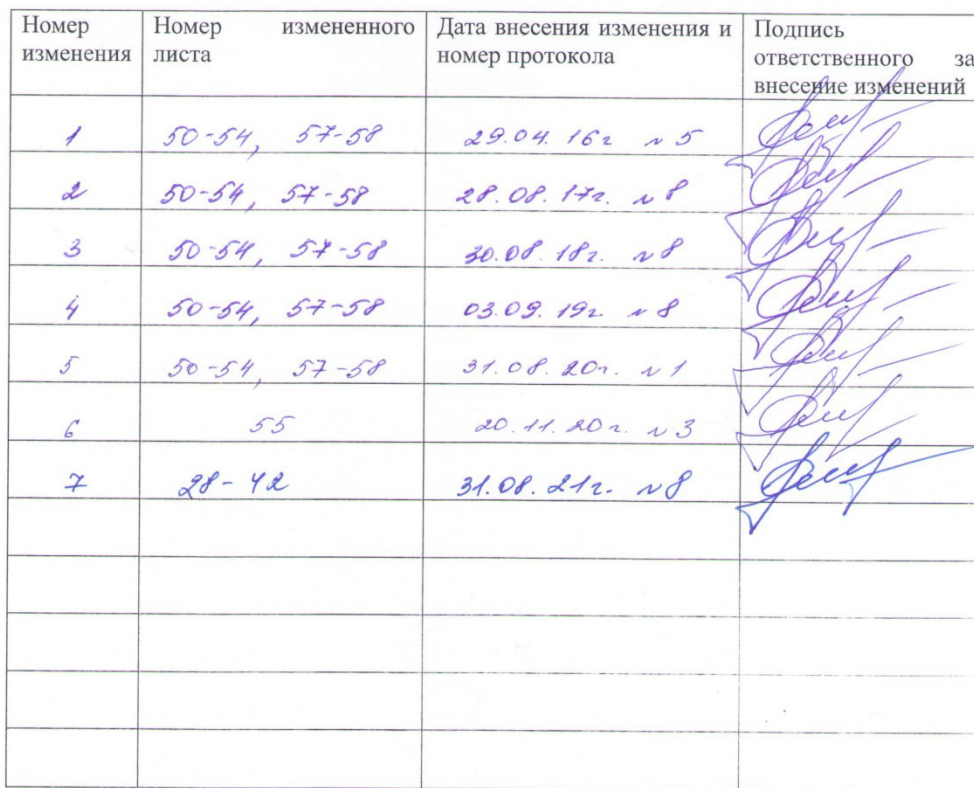 Номер изменения Номер измененного листа Дата внесения изменения и номер протокола Подпись ответственного за внесение изменений
1 50-54, 57-58 29.04.16г №5
2 50-54, 57-58 28.08.17г. №8
3 50-54, 57-58 30.08.18г. №8
4 50-54, 57-58 03.09.19г. №8
5 50-54, 57-58 31.08.20г. №1
6 55 20.11.20г. №3
7 28-42 31.08.21г. №8